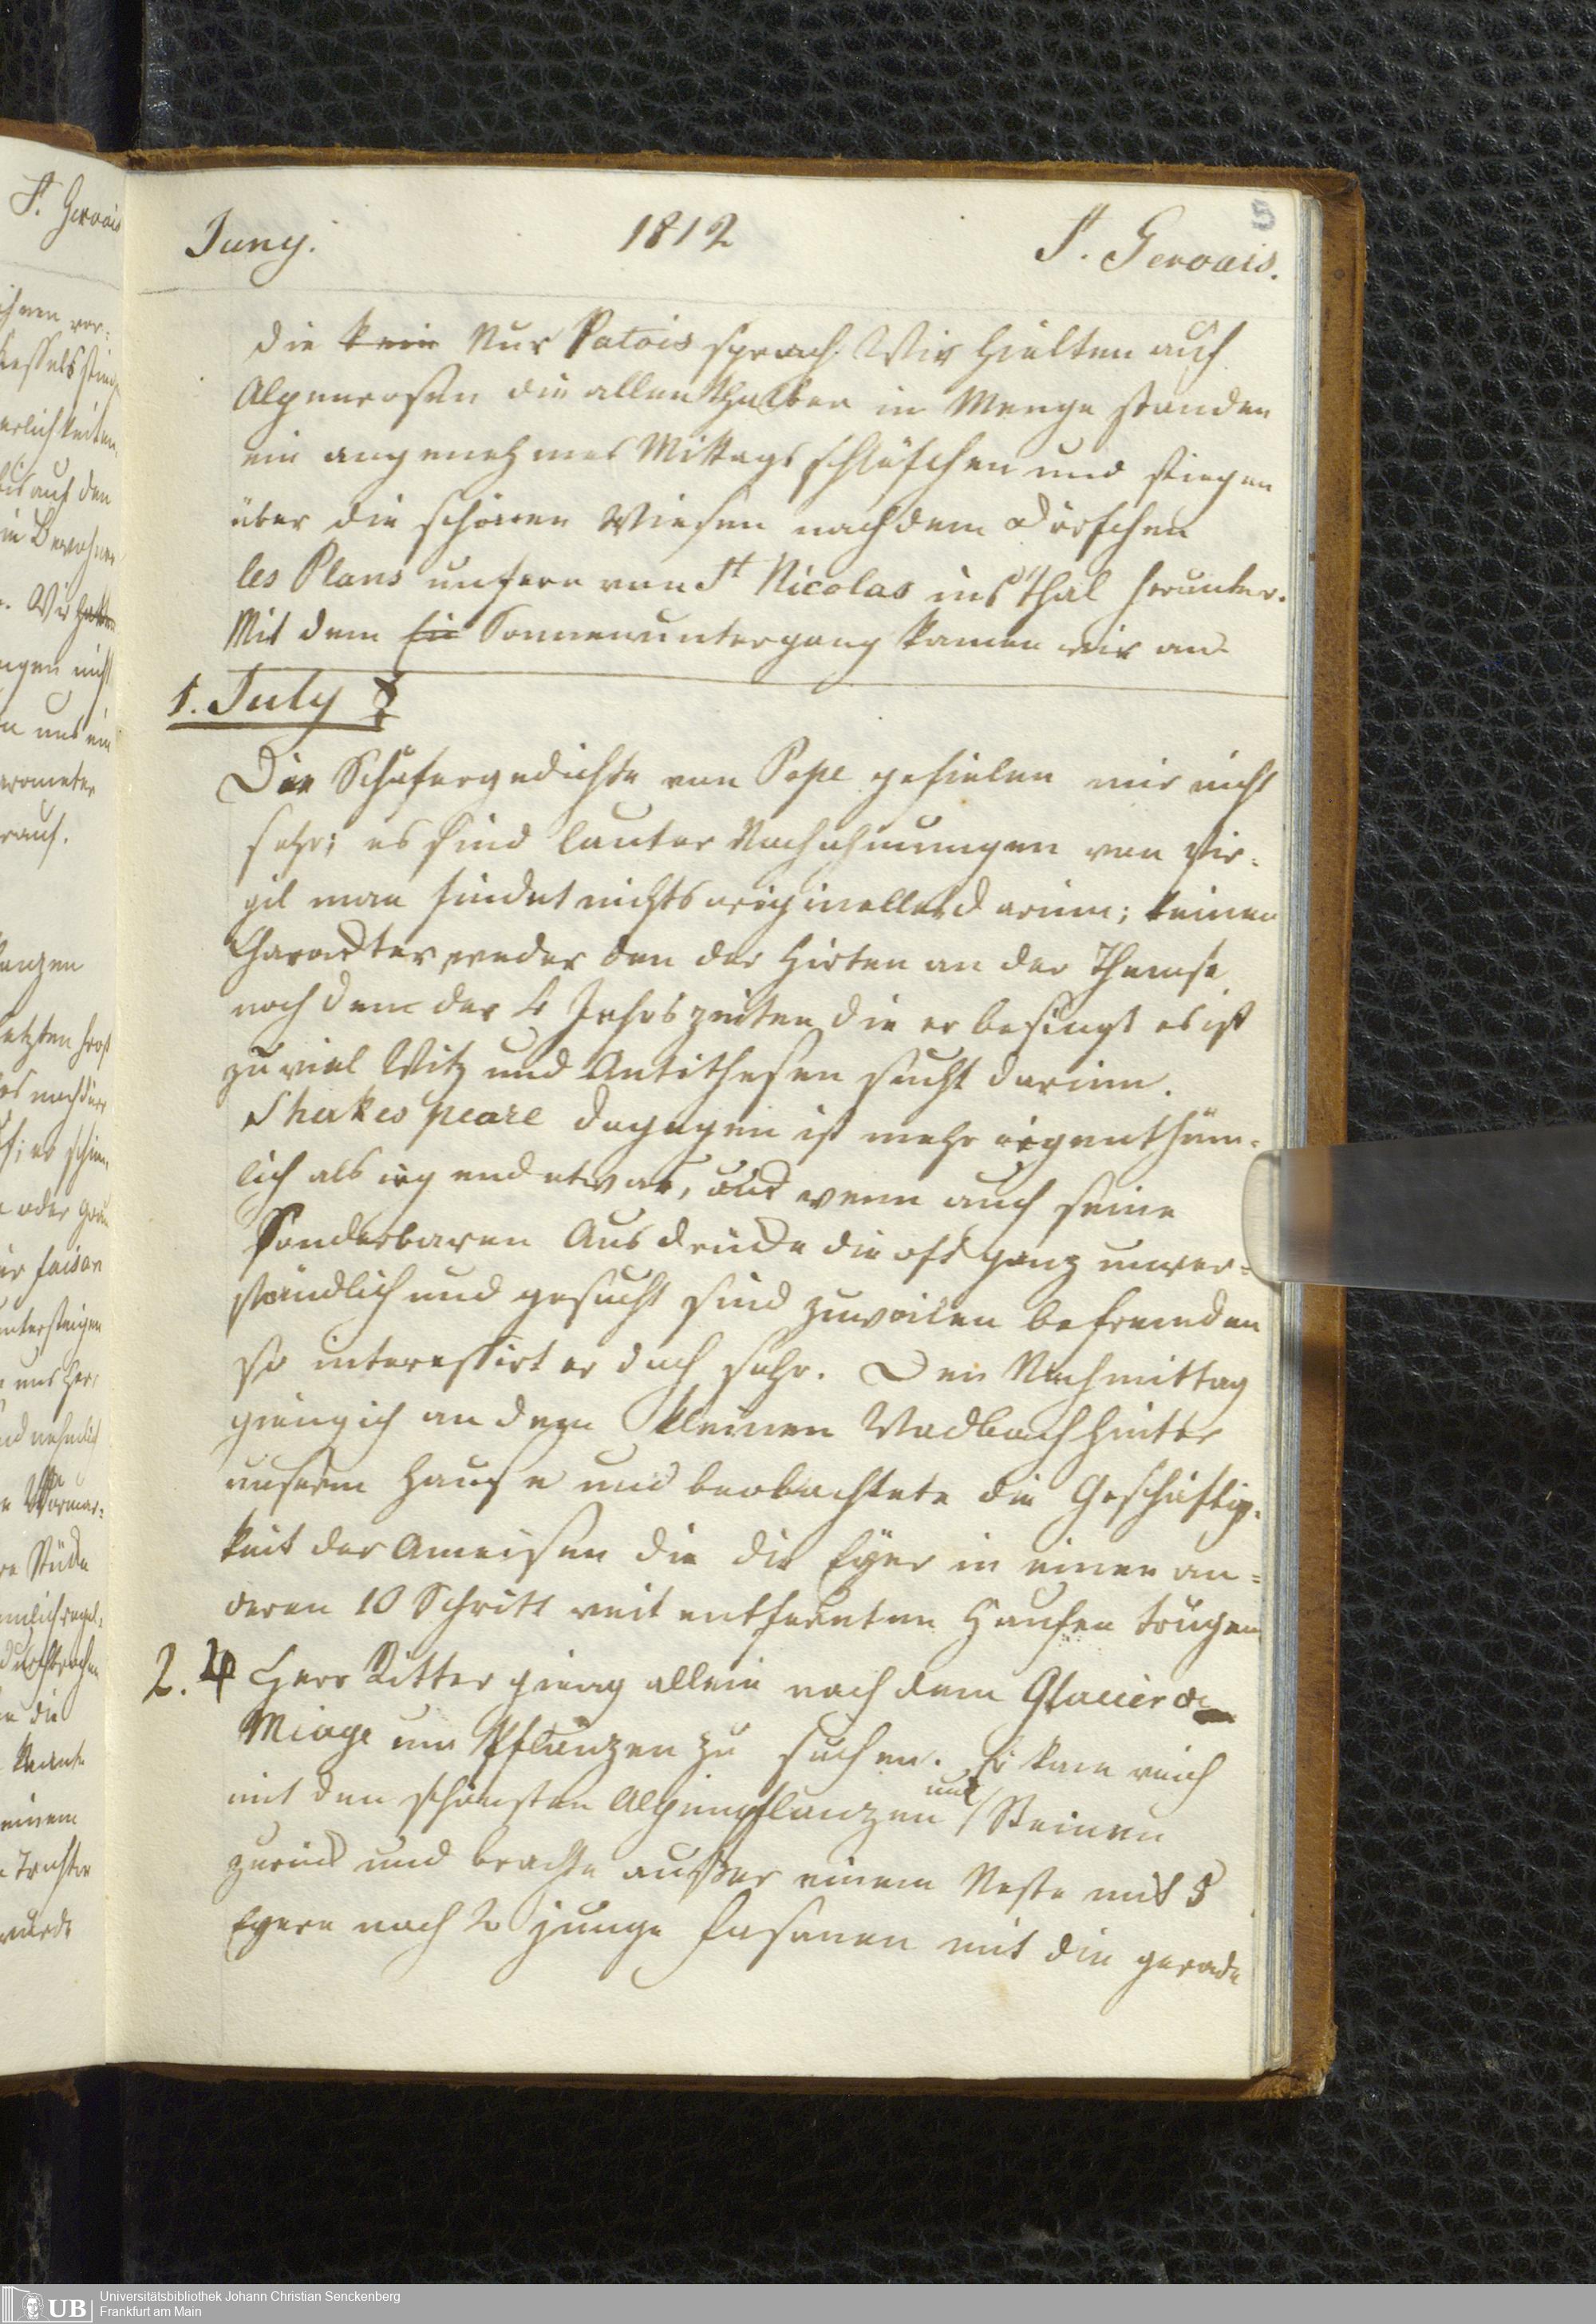 5
Juny. 1812 St. Gervais.
die kein Nur Patois sprach. Wir hielten auf
Alpenrosen die allenthalben in Menge standen
ein angenehmes Mittagsschläfchen und stiegen
über die schönen Wiesen nach dem Dörfchen
les Plans unfern von St Nicolas ins Thal herunter.
Mit dem Sonnenuntergang kamen wir an
1. July ☿
Die Schäfergedichte von Pope gefielen mir nicht
sehr; es sind lauter Nachahmungen von Vir=
gil man findet nichts originelles darinn; keinen
Charackter weder den der Hirten an der Themse
noch den der 4 Jahrszeiten die er besingt es ist
zu viel Witz und Antithesen sucht darinn.
Shakespeare dagegen ist mehr eigenthüm=
lich als irgend etwas, und wenn auch seine
Sonderbaren Ausdrücke die oft ganz unver=
ständlich und gesucht sind zuweilen befremden
so interessirt er doch sehr. Den Nachmittag
gieng ich an dem kleinen Waldbach hinter
unserm Hause und beobachtete die Geschäftig=
keit der Ameisen die die Eyer in einen an=
deren 10 Schritt weit entfernten Haufen trugen
2. ♃ Herr Ritter gieng allein nach dem Glacier de
Miage um Pflanzen zu suchen. Er kam reich
mit den schönsten Alpenpflanzen und Steinen
zurück und brachte außer einem Neste mit 5
Eyern noch 2 junge Fasanen mit die gerade
St. Gervais
Universitätsbibliothek Johann Christian Senckenberg
Frankfurt am Main
UB